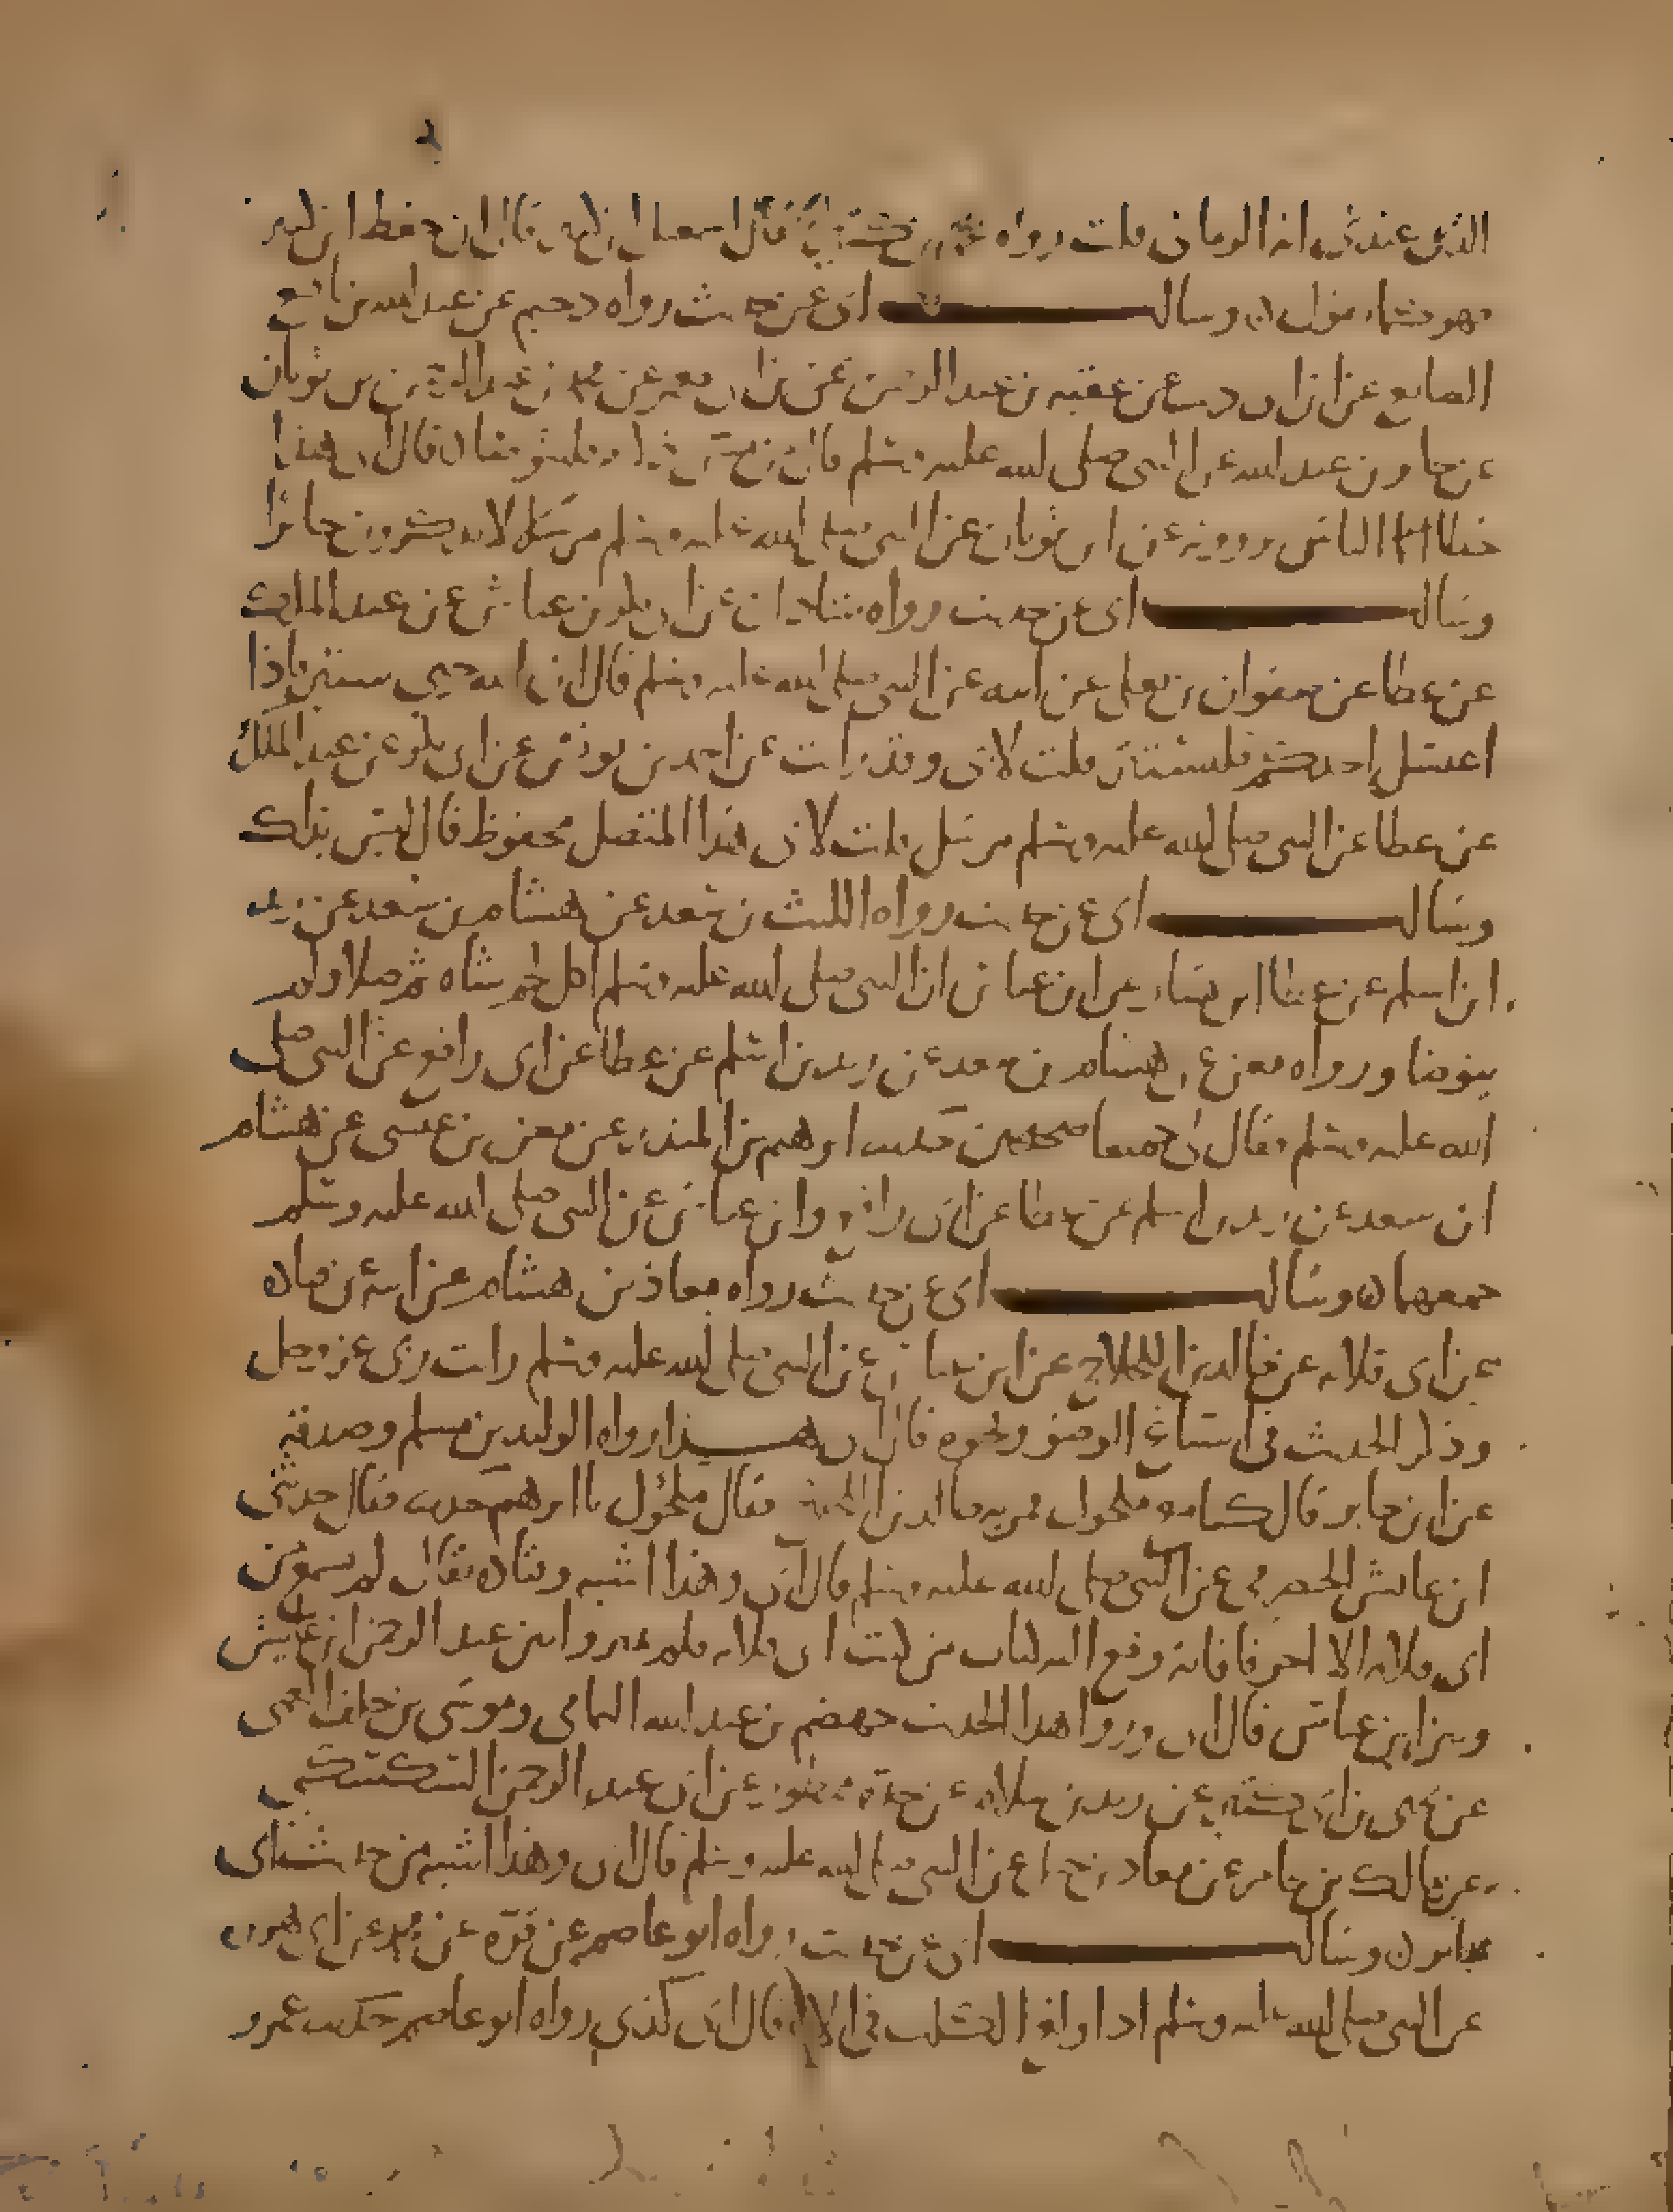 الذي عندي انه الرماني قلت رواه قال اسمعيل قال ان حفظ ابن
فهو وسالت ابي عن حديث رواه دحيم عن عبد الله بن نافع
الصايع عن ابن ابي ذيب عن عقبه بن عبد الرحمن عن محمد بن عبد الرحمن بن ثوبان
عن جابر بن عبد الله عن النبي صلى الله عليه وسلم قال من مس فليتوضا قال ابي هذا
خطا الناس يروونه عن ابن ثوبان عن النبي صلى الله عليه وسلم مرسل لا يذكرون جابرا
وسالت ابي عن حديث رواه شاذان عن ابي بكر بن عياش عن عبد الملك
عن عطا عن صفوان بن يعلى عن ابيه عن النبي صلى الله عليه وسلم قال ان الله حيي ستير فاذا
اغتسل احدكم فليستتر قلت لابي وقد رايت عن احمد بن يونس عن ابي بكر عن عبد الملك
عن عطا عن النبي صلى الله عليه وسلم مرسل قلت لابي هذا المتصل محفوظ قال ليس بذاك
وسالت ابي عن حديث رواه الليث بن سعد عن هشام بن سعد عن زيد
ابن اسلم عن عطا ابن يسار عن ابن عباس ان النبي صلى الله عليه وسلم اكل لحم شاه ثم صلا ولم
يتوضا ورواه معن عن هشام بن سعد عن زيد بن اسلم عن عطا عن ابي رافع عن النبي صلى
الله عليه وسلم فقال لي جميعا صحيحين حدثنا ابرهيم بن المنذر عن معن بن عيسى عن هشام
ابن سعد عن زيد بن اسلم عن عطا عن ابي رافع وابن عباس عن النبي صلى الله عليه وسلم
جمعهما وسالت ابي عن حديث رواه معاذ بن هشام عن ابيه عن قتاده
عن ابي قلابه عن خالد بن اللجلاج عن ابن عباس عن النبي صلى الله عليه وسلم رايت ربي عز وجل
وذكر الحديث في اسباغ الوضو ونحوه قال ابي هذا رواه الوليد بن مسلم وصدقه
عن ابن جابر قال كنا مع مكحول فمر به خالد بن اللجلاج فقال مكحول يا ابرهيم حدثنا فقال حدثني
ابن عايش الحضرمي عن النبي صلى الله عليه وسلم قال ابي وهذا اشبه وقتاده يقال لم يسمع من
ابي قلابه الا احرفا فانه وقع اليه كتاب من كتب ابي قلابه فلم يميزوا بين عبد الرحمن ابن عايش
وبين ابن عباس قال ابي وروا هذا الحديث جهضم بن عبد الله اليمامي وموسى بن خلف العمي
عن يحيى بن ابي كثير عن زيد بن سلام عن جده ممطور عن ابي عبد الرحمن السكسكي
عن مالك بن يخامر عن معاذ بن جبل عن النبي صلى الله عليه وسلم قال ابي وهذا اشبه من حديث ابن
جابر وسالت ابي عن حديث رواه ابو عاصم عن قره عن محمد عن ابي هريره
عن النبي صلى الله عليه وسلم اذا ولغ الكلب في الانا قال ابي كذي رواه ابو عاصم حدثنا عمرو